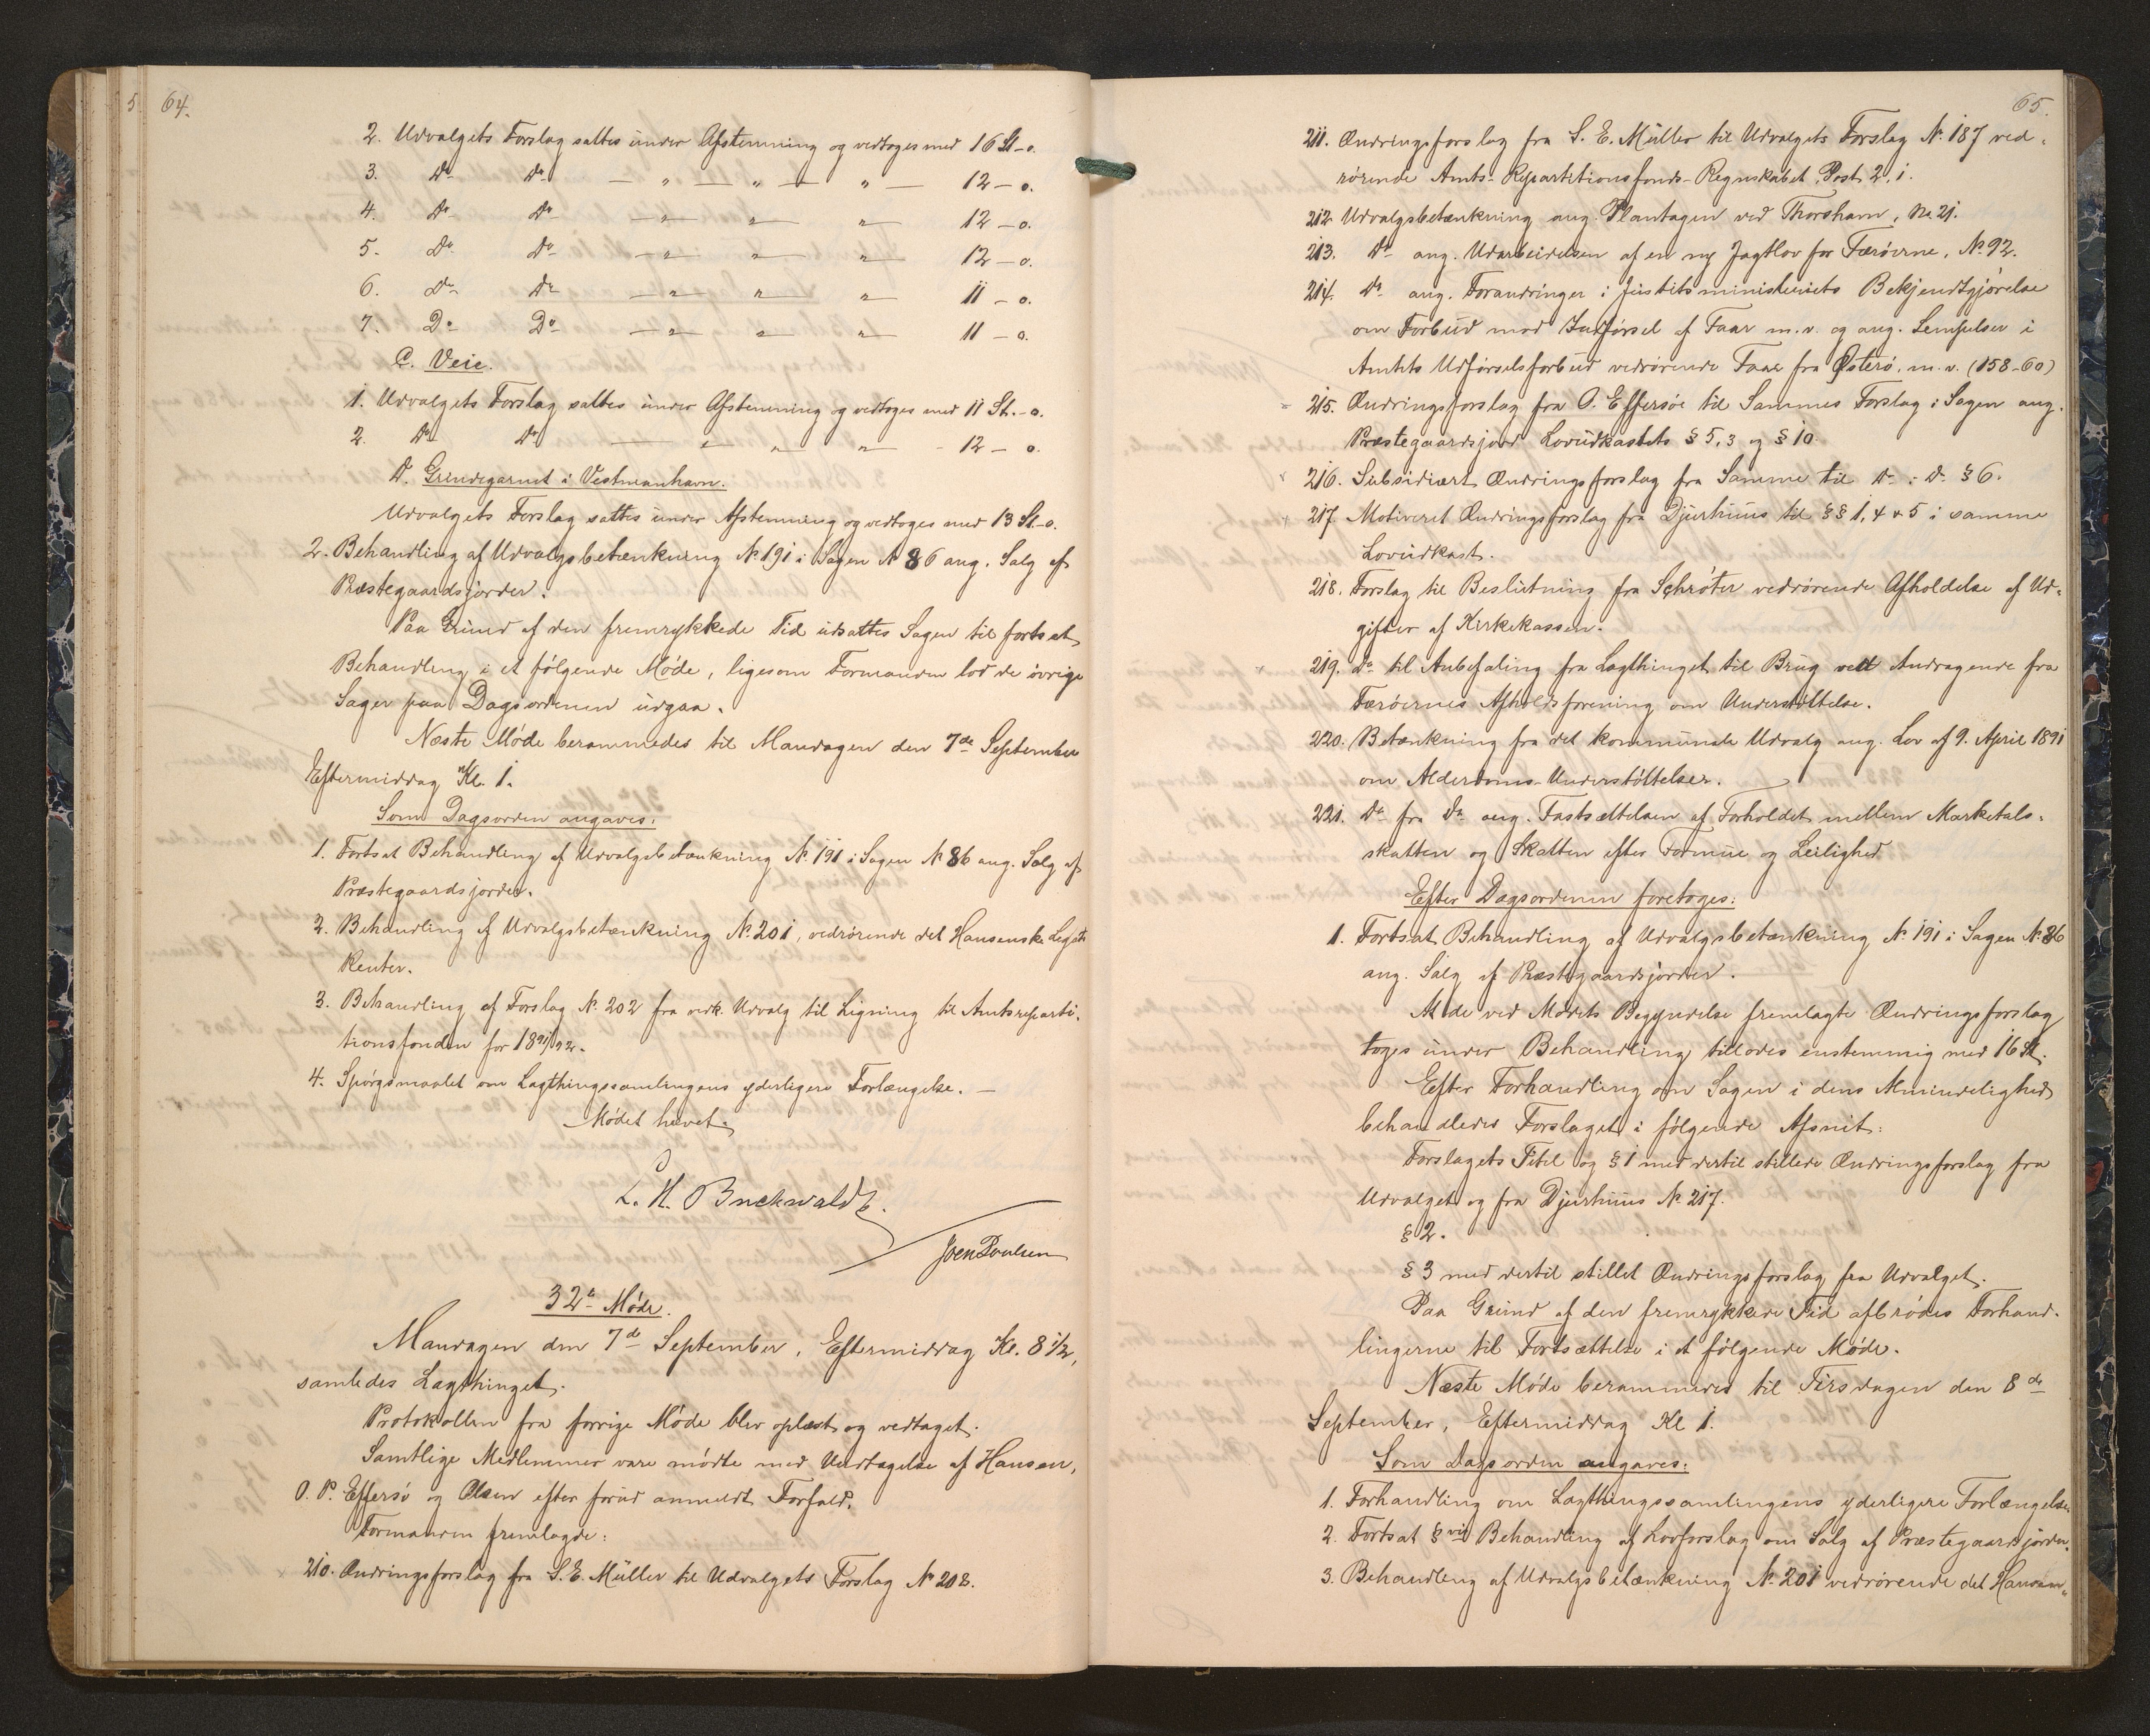 64.
2. Udvalgets Forslag sattes under Afstemning og vedtoges med 16 St - o.
3. Do Do — " — " — " — 12 - o.
4. Do Do — " — " — " — 12 - o.
5. Do Do — " — " — " — 12 - o.
6. Do Do — " — " — " — 11 - o.
7. Do Do — " — " — " — 11 - o.
C. Veie.
1. Udvalgets Forslag sattes under Afstemning og vedtoges med 11 St. - o.
2. Do Do — " — " — " - 12 - o.
D. Grindegarnet i Vestmanhavn.
Udvalgets Forslag sattes under Afstemning og vedtoges med 13 St - o.
2. Behandling af Udvalgsbetænkning No 191 i Sagen No 86 ang. Salg af
Præstegaardsjorder.
Paa Grund af den fremrykkede Tid udsattes Sagen til fortsat
Behandling i et følgende Møde, ligesom Formanden lod de øvrige
Sager paa Dagsordenen udgaa.
Næste Møde berammedes til Mandagen den 7de September
Eftermiddag Kl. 1.
Som Dagsorden angaves:
1. Fortsat Behandling af Udvalgsbetænkning No. 191 i Sagen No 86 ang. Salg af
Præstegaardsjorder.
2. Behandling af Udvalgsbetænkning No. 201, vedrørende det Hansenske Legats
Renter.
3. Behandling af Forslag No. 202 fra vedk. Udvalg til Ligning til Amtsreparti-
tionsfonden for 1891/92.
4. Spørgsmaalet om Lagthingssamlingens yderligere Forlængelse. —
Mødet hævet.
L. H. Buchwaldt.
Joen Poulsen
32te Møde.
Mandagen den 7de September, Eftermiddag Kl. 8 1/2,
samledes Lagthinget.
Protokollen fra forrige Møde blev oplæst og vedtaget.
Samtlige Medlemmer vare mødte med Undtagelse af Hansen,
O. P. Effersø og Olsen efter forud anmeldt Forfald.
Formanden fremlagde:
210. Ændringsforslag fra S. E. Müller til Udvalgets Forslag No 208.
65.
211. Ændringsforslag fra S. E. Müller til Udvalgets Forslag No. 187 ved-
rørende Amts-Repartitionsfonds-Regnskabet, Post 2, 1.
212. Udvalgsbetænkning ang. Plantagen ved Thorshavn, No 21.
213. Do ang. Udarbeidelsen af en ny Jagtlov for Færøerne, No. 92.
214. Do ang. Forandringer i Justitsministeriets Bekjendtgjørelse
om Forbud mod Indførsel af Faar m.v. og ang. Lempelser i
Amtets Udførselsforbud vedrørende Faar fra Østerø, m.v. (158-60)
215. Ændringsforslag fra O. Effersøe til Sammes Forslag i Sagen ang.
Præstegaardsjord Lovudkastets § 5,3 og § 10.
216. Subsidiært Ændringsforslag fra Samme til Do i Do § 6.
217. Motiveret Ændringsforslag fra Djurhuus til §§ 1, 4 & 5 i samme
Lovudkast.
218. Forslag til Beslutning fra Schrøter vedrørende Afholdelse af Ud-
gifter af Kirkekassen.
219. Do til Anbefaling fra Lagthinget til Brug ved Andragende fra
Færøernes Afholdsforening om Understøttelse.
220. Betænkning fra det kommunale Udvalg ang. Lov af 9. April 1891
om Alderdoms-Understøttelser.
221. Do fra Do ang. Fastsættelsen af Forholdet mellem Marketals-
skatten og Skatten efter Formue og Leilighed
Efter Dagsordenen foretoges:
1. Fortsat Behandling af Udvalgsbetænkning No. 191 i Sagen No. 86
ang. Salg af Præstegaardsjorder.
At de ved Mødets Begyndelse fremlagte Ændringsforslag
toges under Behandling tillodes enstemmig med 16 St.
Efter Forhandling om Sagen i dens Almindelighed
behandledes Forslaget i følgende Afsnit:
Forslagets Titel og § 1 med dertil stillede Ændringsforslag fra
Udvalget og fra Djurhuus No. 217.
§ 2.
§ 3 med dertil stillet Ændringsforslag fra Udvalget.
Paa Grund af den fremrykkede Tid afbrødes Forhand-
lingerne til Fortsættelse i et følgende Møde.
Næste Møde berammedes til Tirsdagen den 8de
September, Eftermiddag Kl 1.
Som Dagsorden angaves:
1. Forhandling om Lagthingssamlingens yderligere Forlængelse.
2. Fortsat §vis Behandling af Lovforslag om Salg af Præstegaardsjorder.
3. Behandling af Udvalgsbetænkning No. 201 vedrørende det Hansen-